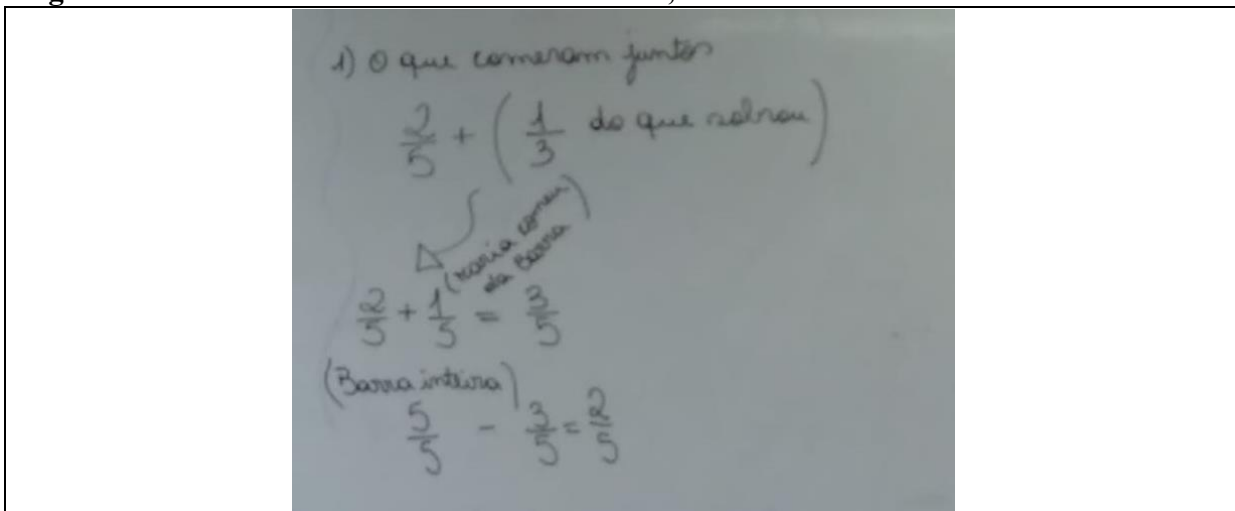 1) O que comeram juntos
2/5 + ( 1/3 do que sobrou )
(Maria comeu
da Barra )
2/5 + 1/5 = 3/5
(Barra inteira)
5/5 - 3/5 = 2/5